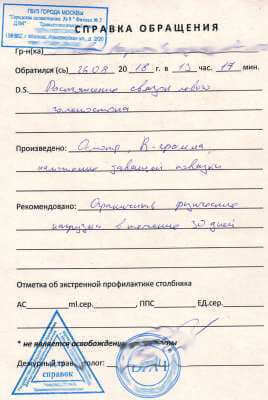 ГБУЗ ГОРОДА МОСКВЫ
СПРАВКА ОБРАЩЕНИЯ
Гр-н(ка)
Обратился (сь) 26.08 2018 г. в 13 час. 17 мин.
D.S. Растяжение связок левого
голеностопа
Произведено: Осмотр, R-грамма,
наложение давящей повязки
Рекомендовано: Ограничить физические
нагрузки в течение 30 дней
Отметка об экстренной профилактике столбняка
АС ml.сер. , ППС ЕД.сер.
* не является освобождением
Дежурный трав олог:
справок